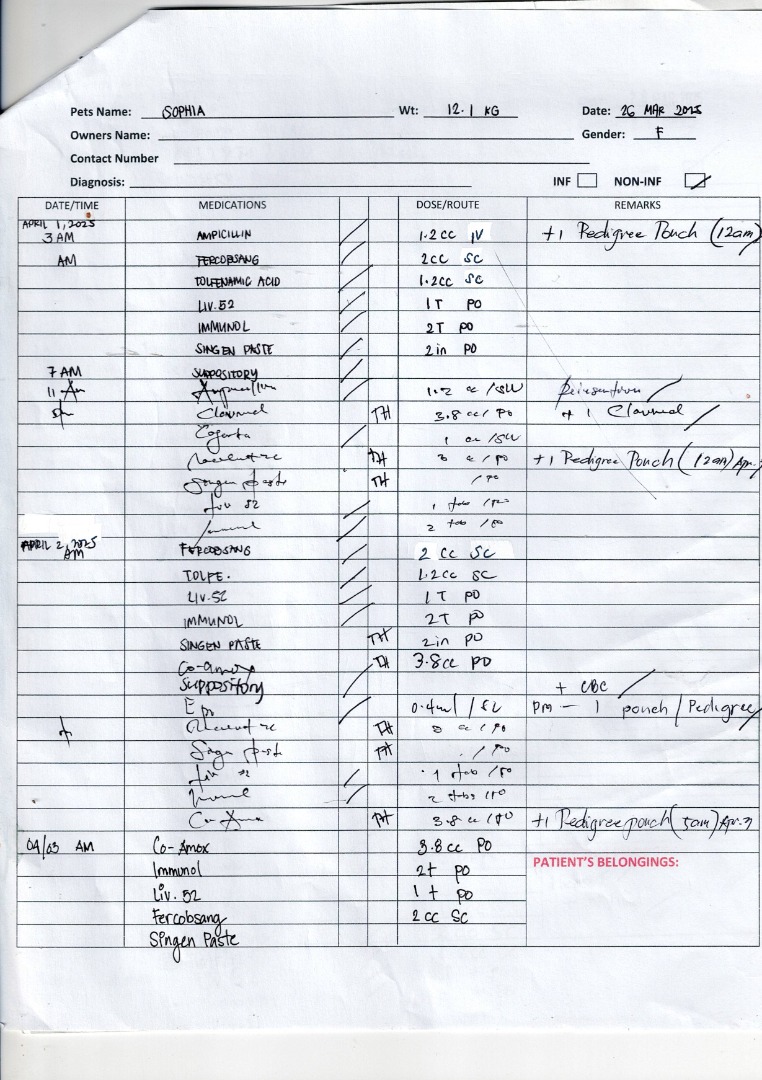 Pets Name: SOPHIA Wt: 12.1 KG Date: 26 MAR 2025
Owners Name: Gender: F
Contact Number
Diagnosis: INF NON-INF
DATE/TIME MEDICATIONS DOSE/ROUTE REMARKS
APRIL 1, 2025
3 AM AMPICILLIN 1.2 cc IV +1 Pedigree Pouch (12am)
AM FERCOBSANG 2cc SC
TOLFENAMIC ACID 1.2cc SC
LIV.52 1T PO
IMMUNOL 2T PO
SINGEN PASTE 2in PO
7 AM SUPPOSITORY
11 Am Ampicillin
Clavumel TH 3.8 cc / PO + 1 Clavumel
1 cc
TH 3 cc / PO +1 Pedigree Pouch (12am) Apr.
Singen paste TH / PO
Liv 52 1 tab / PO
2 tab / PO
APRIL 2, 2025
AM FERCOBSANG 2 cc SC
TOLFE. 1.2cc SC
LIV.52 1T PO
IMMUNOL 2T PO
SINGEN PASTE TH 2in PO
Co-Amox TH 3.8cc PO
Suppository + CBC
Epo 0.4ml / PM – 1 pouch / Pedigree
TH cc / PO
Singen paste TH / PO
Liv 52 1 tab / PO
2 tabs / PO
Co-Amox TH 3.8 cc / PO +1 Pedigree pouch (5am) Apr.3
04/03 AM Co-Amox 3.8cc PO
PATIENT'S BELONGINGS:
Immunol 2t PO
Liv. 52 1 t PO
Fercobsang 2 cc SC
Singen Paste